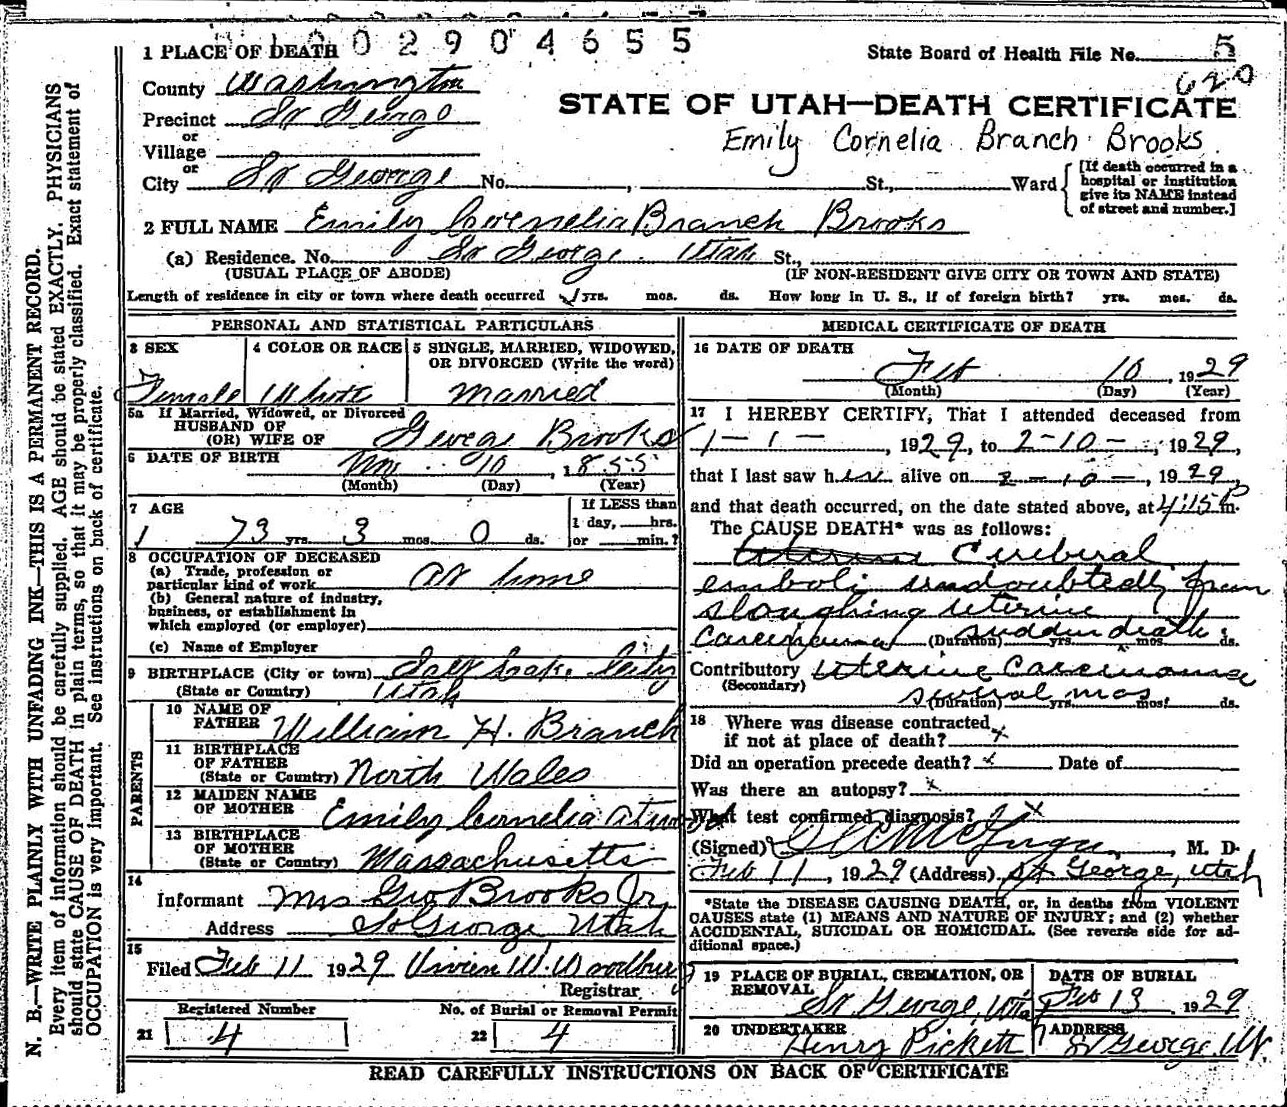 0 0 2 9 0 4 6 5 5
1 PLACE OF DEATH
State Board of Health File No. 5
620
County Washington
STATE OF UTAH—DEATH CERTIFICATE
Precinct St George
or
Emily Cornelia Branch Brooks
Village
or
City St George No. , St., Ward
[If death occurred in a hospital or institution give its NAME instead of street and number.]
2 FULL NAME Emily Cornelia Branch Brooks
(a) Residence. No. St George Utah St.,
(USUAL PLACE OF ABODE) (IF NON-RESIDENT GIVE CITY OR TOWN AND STATE)
Length of residence in city or town where death occurred yrs. mos. ds. How long in U. S., if of foreign birth? yrs. mos. ds.
PERSONAL AND STATISTICAL PARTICULARS
3 SEX
Female
4 COLOR OR RACE
White
5 SINGLE, MARRIED, WIDOWED,
OR DIVORCED (Write the word)
Married
5a If Married, Widowed, or Divorced
HUSBAND OF
(OR) WIFE OF George Brooks
6 DATE OF BIRTH Nov. 10, 1855
(Month) (Day) (Year)
7 AGE
73 yrs. 3 mos. 0 ds.
If LESS than
1 day, hrs.
or min.?
8 OCCUPATION OF DECEASED
(a) Trade, profession or
particular kind of work At home
(b) General nature of industry,
business, or establishment in
which employed (or employer)
(c) Name of Employer
9 BIRTHPLACE (City or town) Salt Lake City
(State or Country) Utah
PARENTS
10 NAME OF
FATHER William H. Branch
11 BIRTHPLACE
OF FATHER
(State or Country) North Wales
12 MAIDEN NAME
OF MOTHER Emily Cornelia Atwood
13 BIRTHPLACE
OF MOTHER
(State or Country) Massachusetts
14
Informant Mrs Geo Brooks Jr.
Address St George Utah
15
Filed Feb 11 1929 Vivien W. Woodbury
Registrar
Registered Number
21 4
No. of Burial or Removal Permit
22 4
MEDICAL CERTIFICATE OF DEATH
16 DATE OF DEATH
Feb 10, 1929
(Month) (Day) (Year)
17 I HEREBY CERTIFY, That I attended deceased from
1-1-, 1929, to 2-10-, 1929,
that I last saw her alive on 2-10-, 1929,
and that death occurred, on the date stated above, at 4:15 P m.
The CAUSE DEATH* was as follows:
Uterine Cerebral
emboli undoubtedly from
sloughing uterine
carcinoma (Duration) sudden death yrs. mos. ds.
Contributory Uterine Carcinoma
(Secondary)
several mos. (Duration) yrs. mos. ds.
18 Where was disease contracted
if not at place of death? x
Did an operation precede death? x Date of
Was there an autopsy? x
What test confirmed diagnosis? x
(Signed) McGregor, M. D.
Feb 11, 1929 (Address) St George, Utah
*State the DISEASE CAUSING DEATH, or, in deaths from VIOLENT
CAUSES state (1) MEANS AND NATURE OF INJURY; and (2) whether
ACCIDENTAL, SUICIDAL OR HOMICIDAL. (See reverse side for ad-
ditional space.)
19 PLACE OF BURIAL, CREMATION, OR
REMOVAL
St George, Utah
DATE OF BURIAL
Feb 13 1929
20 UNDERTAKER
Henry Pickett
ADDRESS
St George, Ut.
READ CAREFULLY INSTRUCTIONS ON BACK OF CERTIFICATE
N. B.—WRITE PLAINLY WITH UNFADING INK—THIS IS A PERMANENT RECORD.
Every item of information should be carefully supplied. AGE should be stated EXACTLY. PHYSICIANS
should state CAUSE OF DEATH in plain terms, so that it may be properly classified. Exact statement of
OCCUPATION is very important. See instructions on back of certificate.